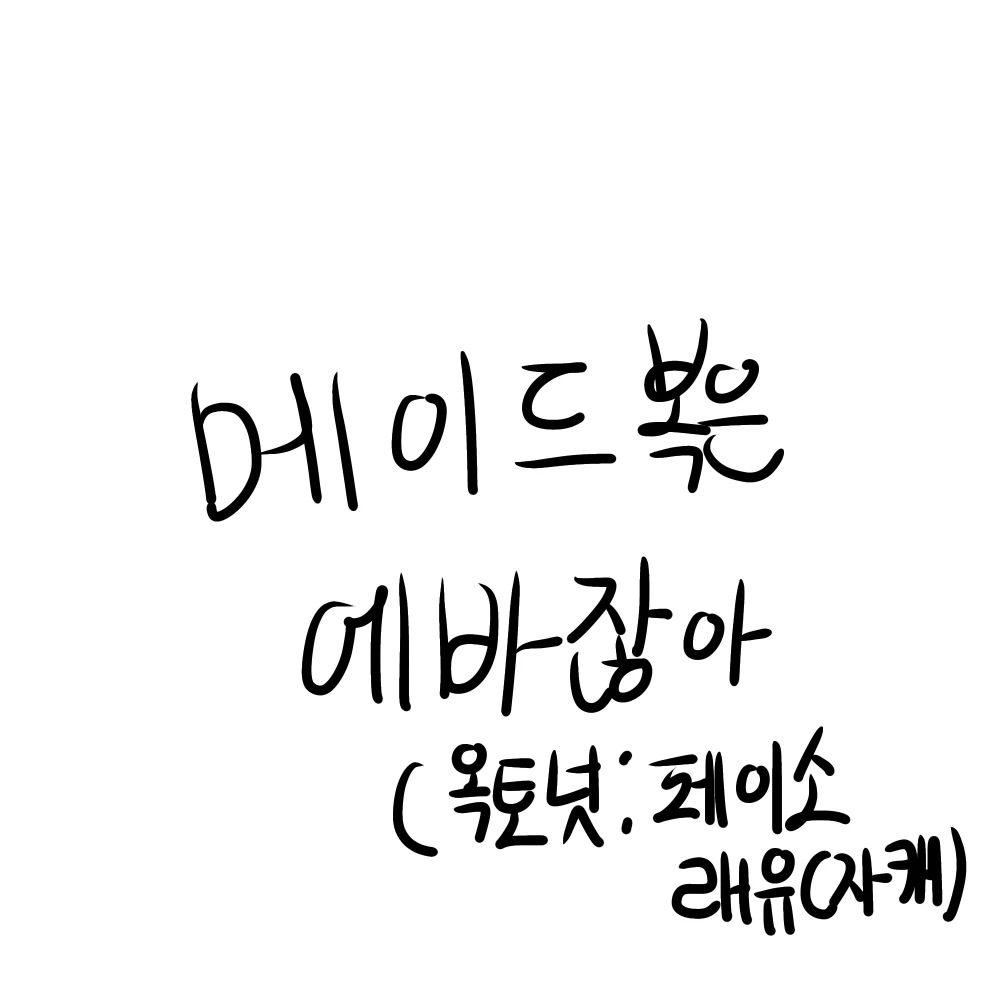 메이드복은
에바잖아
(옥토넛: 페이소
래유(자캐)